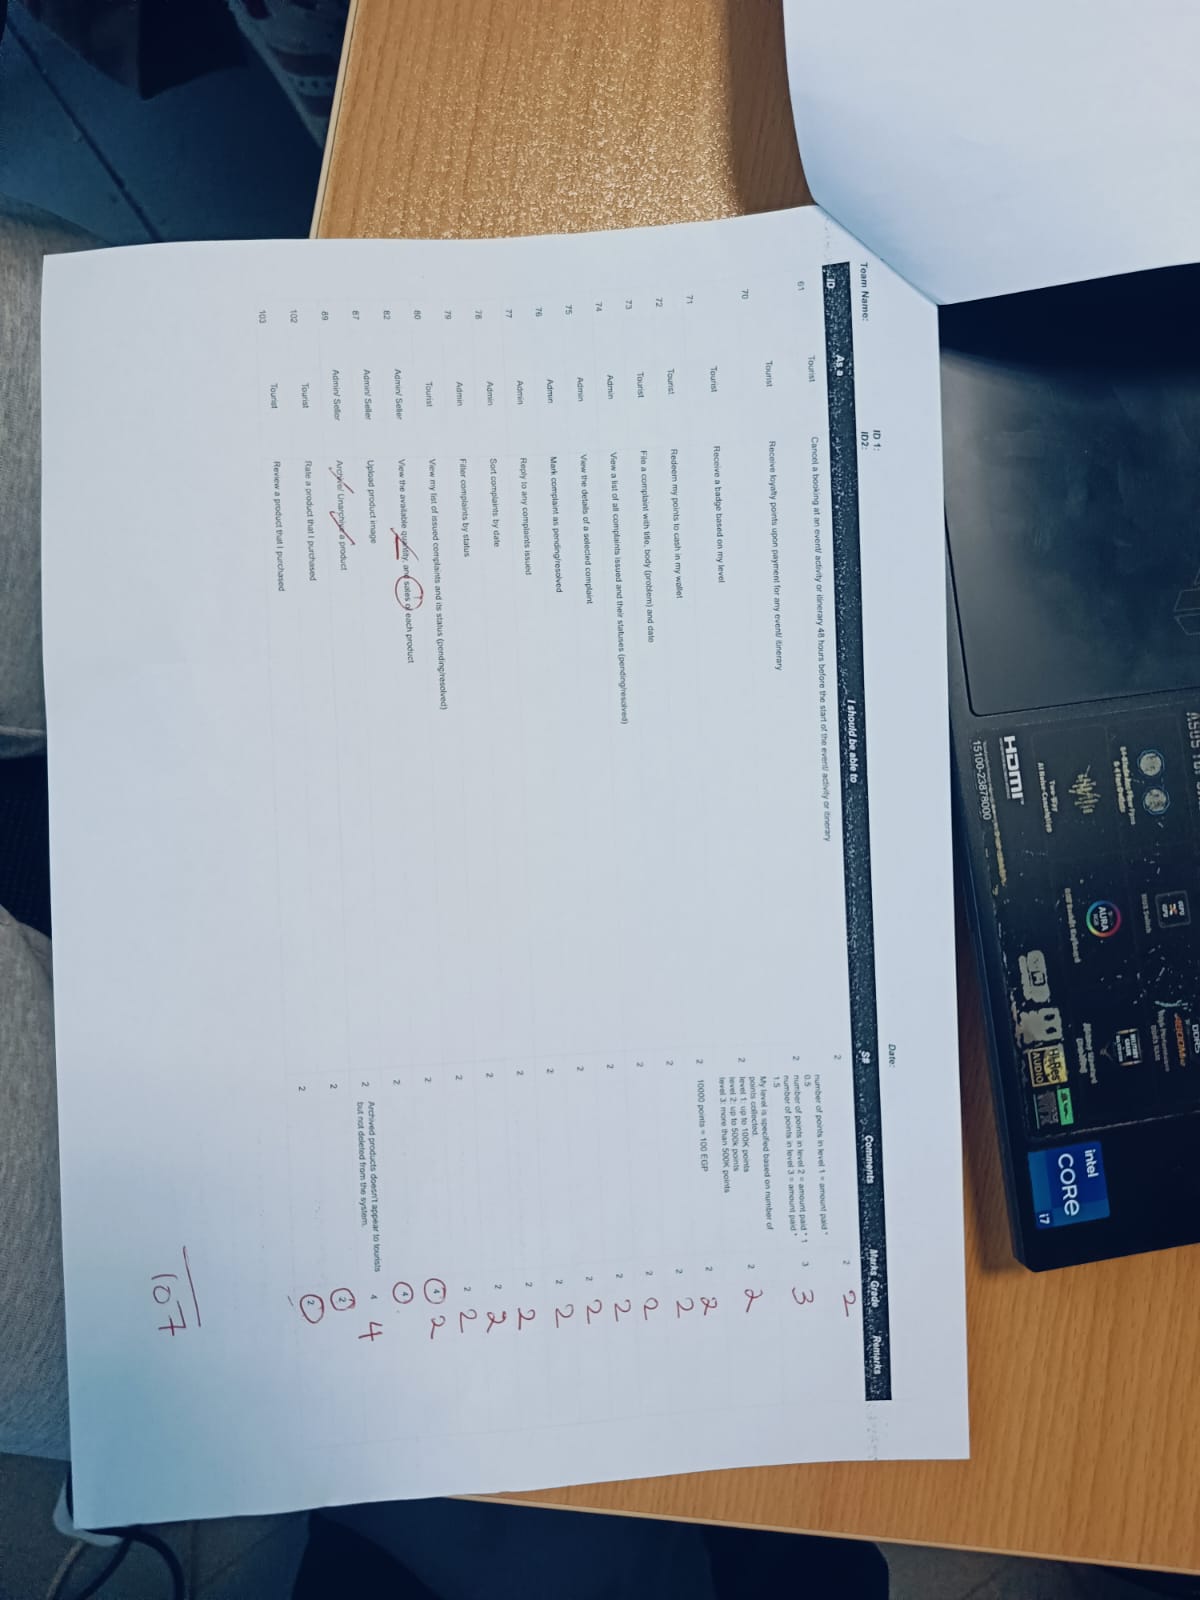 ASUS TUF
DDR5
4800MHz
High Performance
DDR5 RAM
MUX Switch
84-Blade Arc Flow Fans
& 4 Fan Outlets
MILITARY
GRADE
AURA
RGB
RGB Backlit Keyboard
Military Standard
Two-Way
AI Noise-Cancelation
Hi-Res
AUDIO
intel
CORE
i7
HDMI™
15100-23878000
Team Name: ID 1: Date:
ID2:
ID As a I should be able to S# Comments Marks Grade Remarks
61 Tourist Cancel a booking at an event/ activity or itinerary 48 hours before the start of the event/ activity or itinerary 2 2 2
70 Tourist Receive loyalty points upon payment for any event/ itinerary 2 number of points in level 1 = amount paid * 3 3
0.5
number of points in level 2 = amount paid * 1
number of points in level 3 = amount paid *
1.5
71 Tourist Receive a badge based on my level 2 My level is specified based on number of 2 2
points collected.
level 1: up to 100K points
level 2: up to 500k points
level 3: more than 500K points
72 Tourist Redeem my points to cash in my wallet 2 10000 points = 100 EGP 2 2
73 Tourist File a complaint with title, body (problem) and date 2 2 2
74 Admin View a list of all complaints issued and their statuses (pending/resolved) 2 2 2
75 Admin View the details of a selected complaint 2 2 2
76 Admin Mark complaint as pending/resolved 2 2 2
77 Admin Reply to any complaints issued 2 2 2
78 Admin Sort complaints by date 2 2 2
79 Admin Filter complaints by status 2 2 2
80 Tourist View my list of issued complaints and its status (pending/resolved) 2 2 2
82 Admin/ Seller View the available quantity, and sales of each product 2 4 2
87 Admin/ Seller Upload product image 2 4
89 Admin/ Seller Archive/ Unarchive a product 2 Archived products doesn't appear to tourists 4 4
but not deleted from the system.
102 Tourist Rate a product that I purchased 2 2
103 Tourist Review a product that I purchased 2 2
107